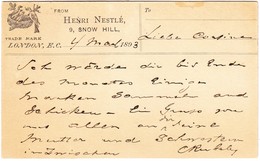 FROM
HENRI NESTLÉ,
9, SNOW HILL,
TRADE MARK
LONDON, E.C.
To
4 Mai 1893
Liebe Cousine
Ich werde die bis Ende
des Monates einige
Marken sammeln und
schicken – Ein Gruss von
uns allen an Meine
Mutter und Schwestern
inzwischen